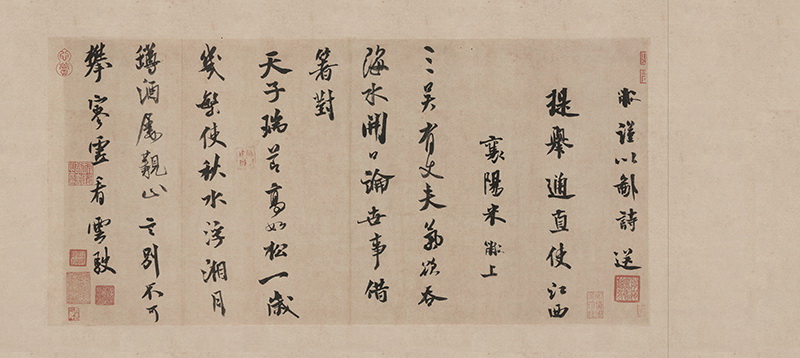 黻謹以鄙詩送
提舉通直使江西
襄陽米黻上
三吳有丈夫氣欲吞
海水開口論世事借
箸對
天子瑞節高如松一歲
幾繁使秋水浮湘月
罇酒屢親止言別不可
攀寒看雲駛